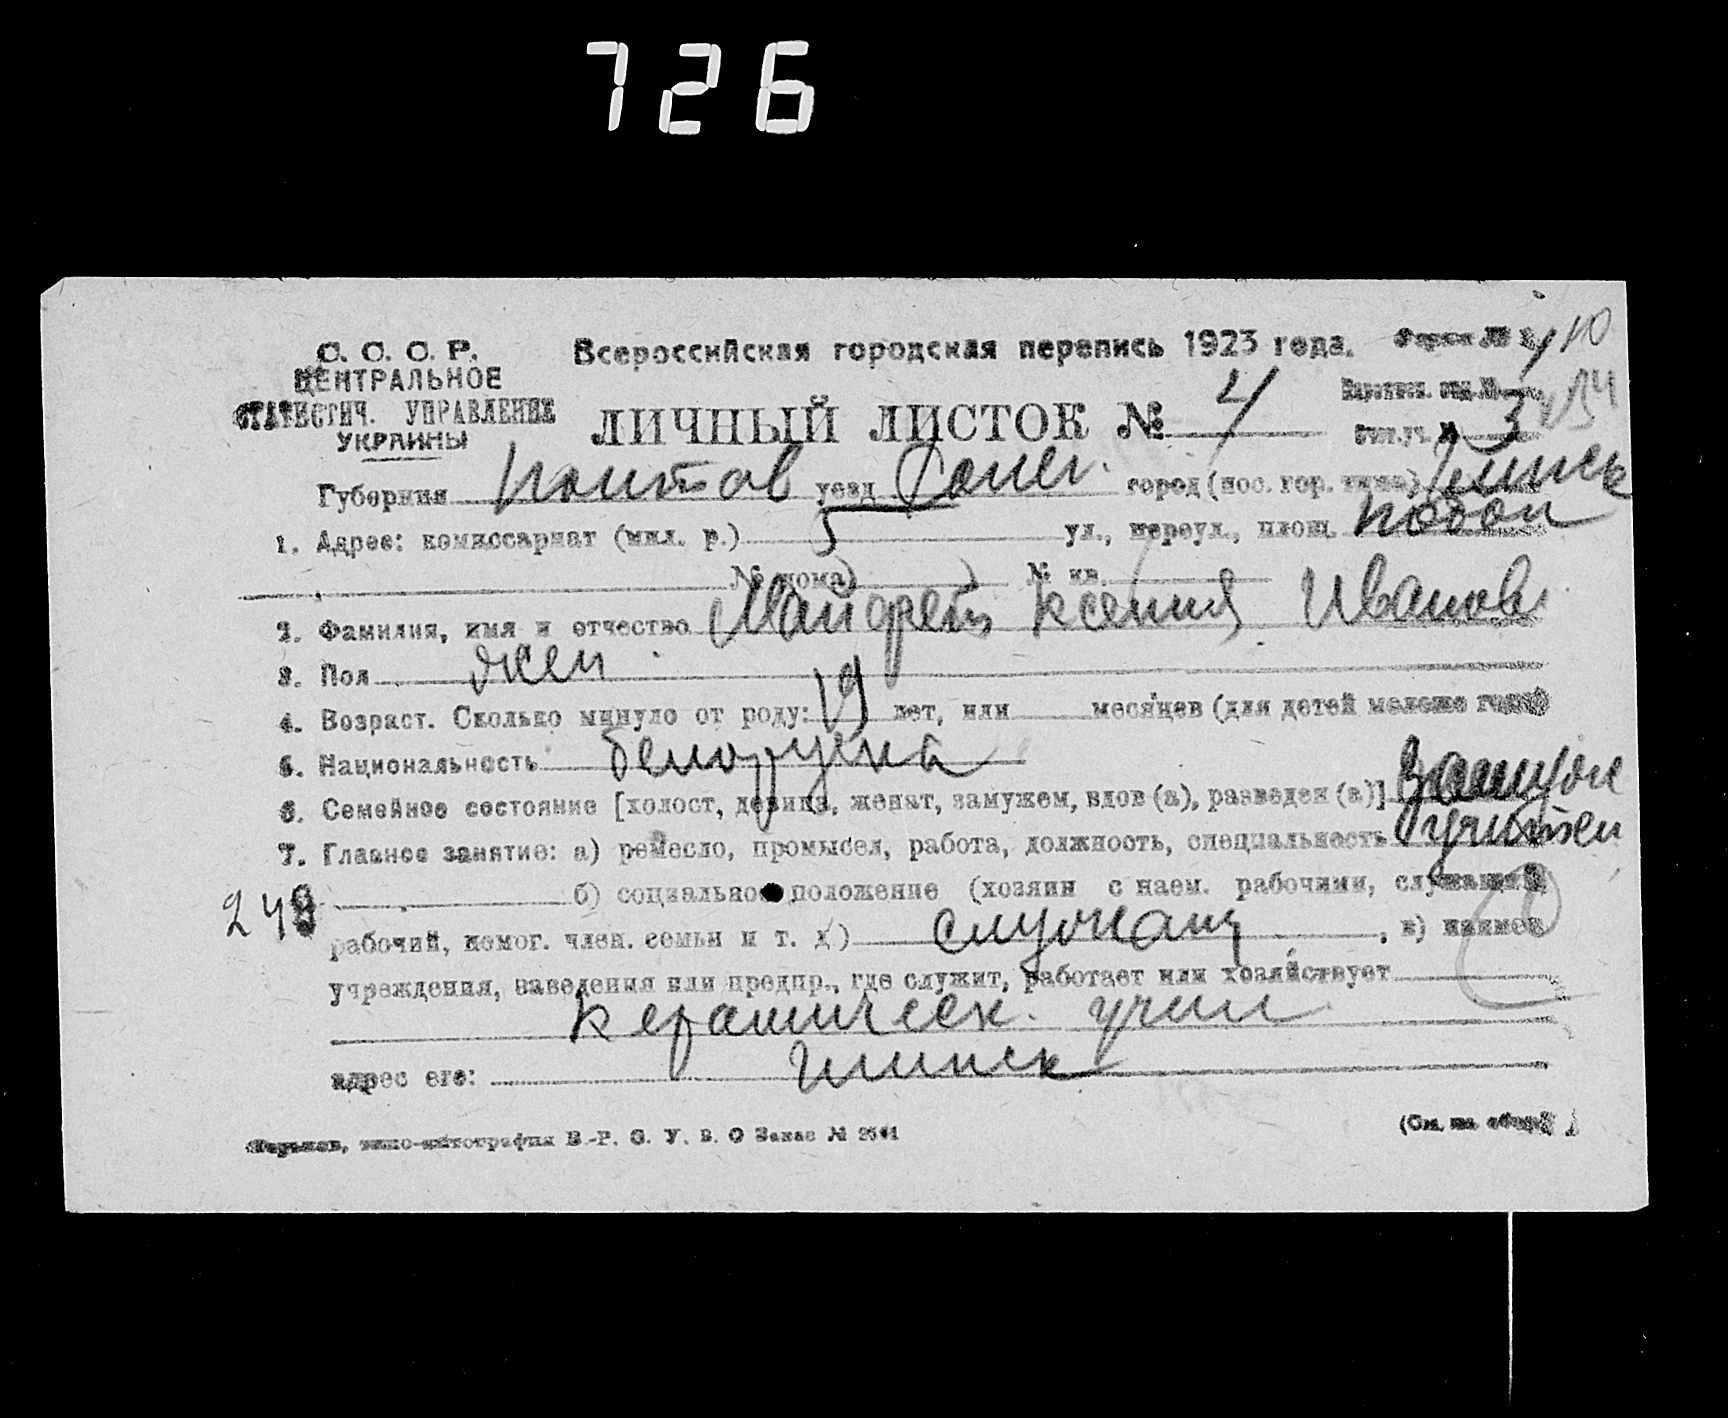 726
С. С. С. Р.
ЦЕНТРАЛЬНОЕ
СТАТИСТИЧ. УПРАВЛЕНИЕ
УКРАИНЫ
Всероссийская городская перепись 1923 года.
Форма №
ЛИЧНЫЙ ЛИСТОК № 4
3
Губерния Полтов уезд Ромен. город (пос. гор. типа) Глинск
1. Адрес: комиссариат (мил. р.) 5 ул., переул., площ. Подол
№ дома № кв.
2. Фамилия, имя и отчество Ксения Иванов
3. Пол жен
4. Возраст. Сколько минуло от роду: 19 лет, или месяцев (для детей моложе года)
5. Национальность белорусска
6. Семейное состояние [холост, девица, женат, замужем, вдов (а), разведен (а)] Замуж
7. Главное занятие: а) ремесло, промысел, работа, должность, специальность учител
248 б) социальное положение (хозяин с наем. рабочими, служащий,
рабочий, помог. член. семьи и т. д.) служащ , в) наимен.
учреждения, заведения или предпр., где служит, работает или хозяйствует
Керамическ. учил
адрес его: Глинск
Харьков, типо-литография В.-Р. С. У. В. О Заказ №
(См. на обор.)